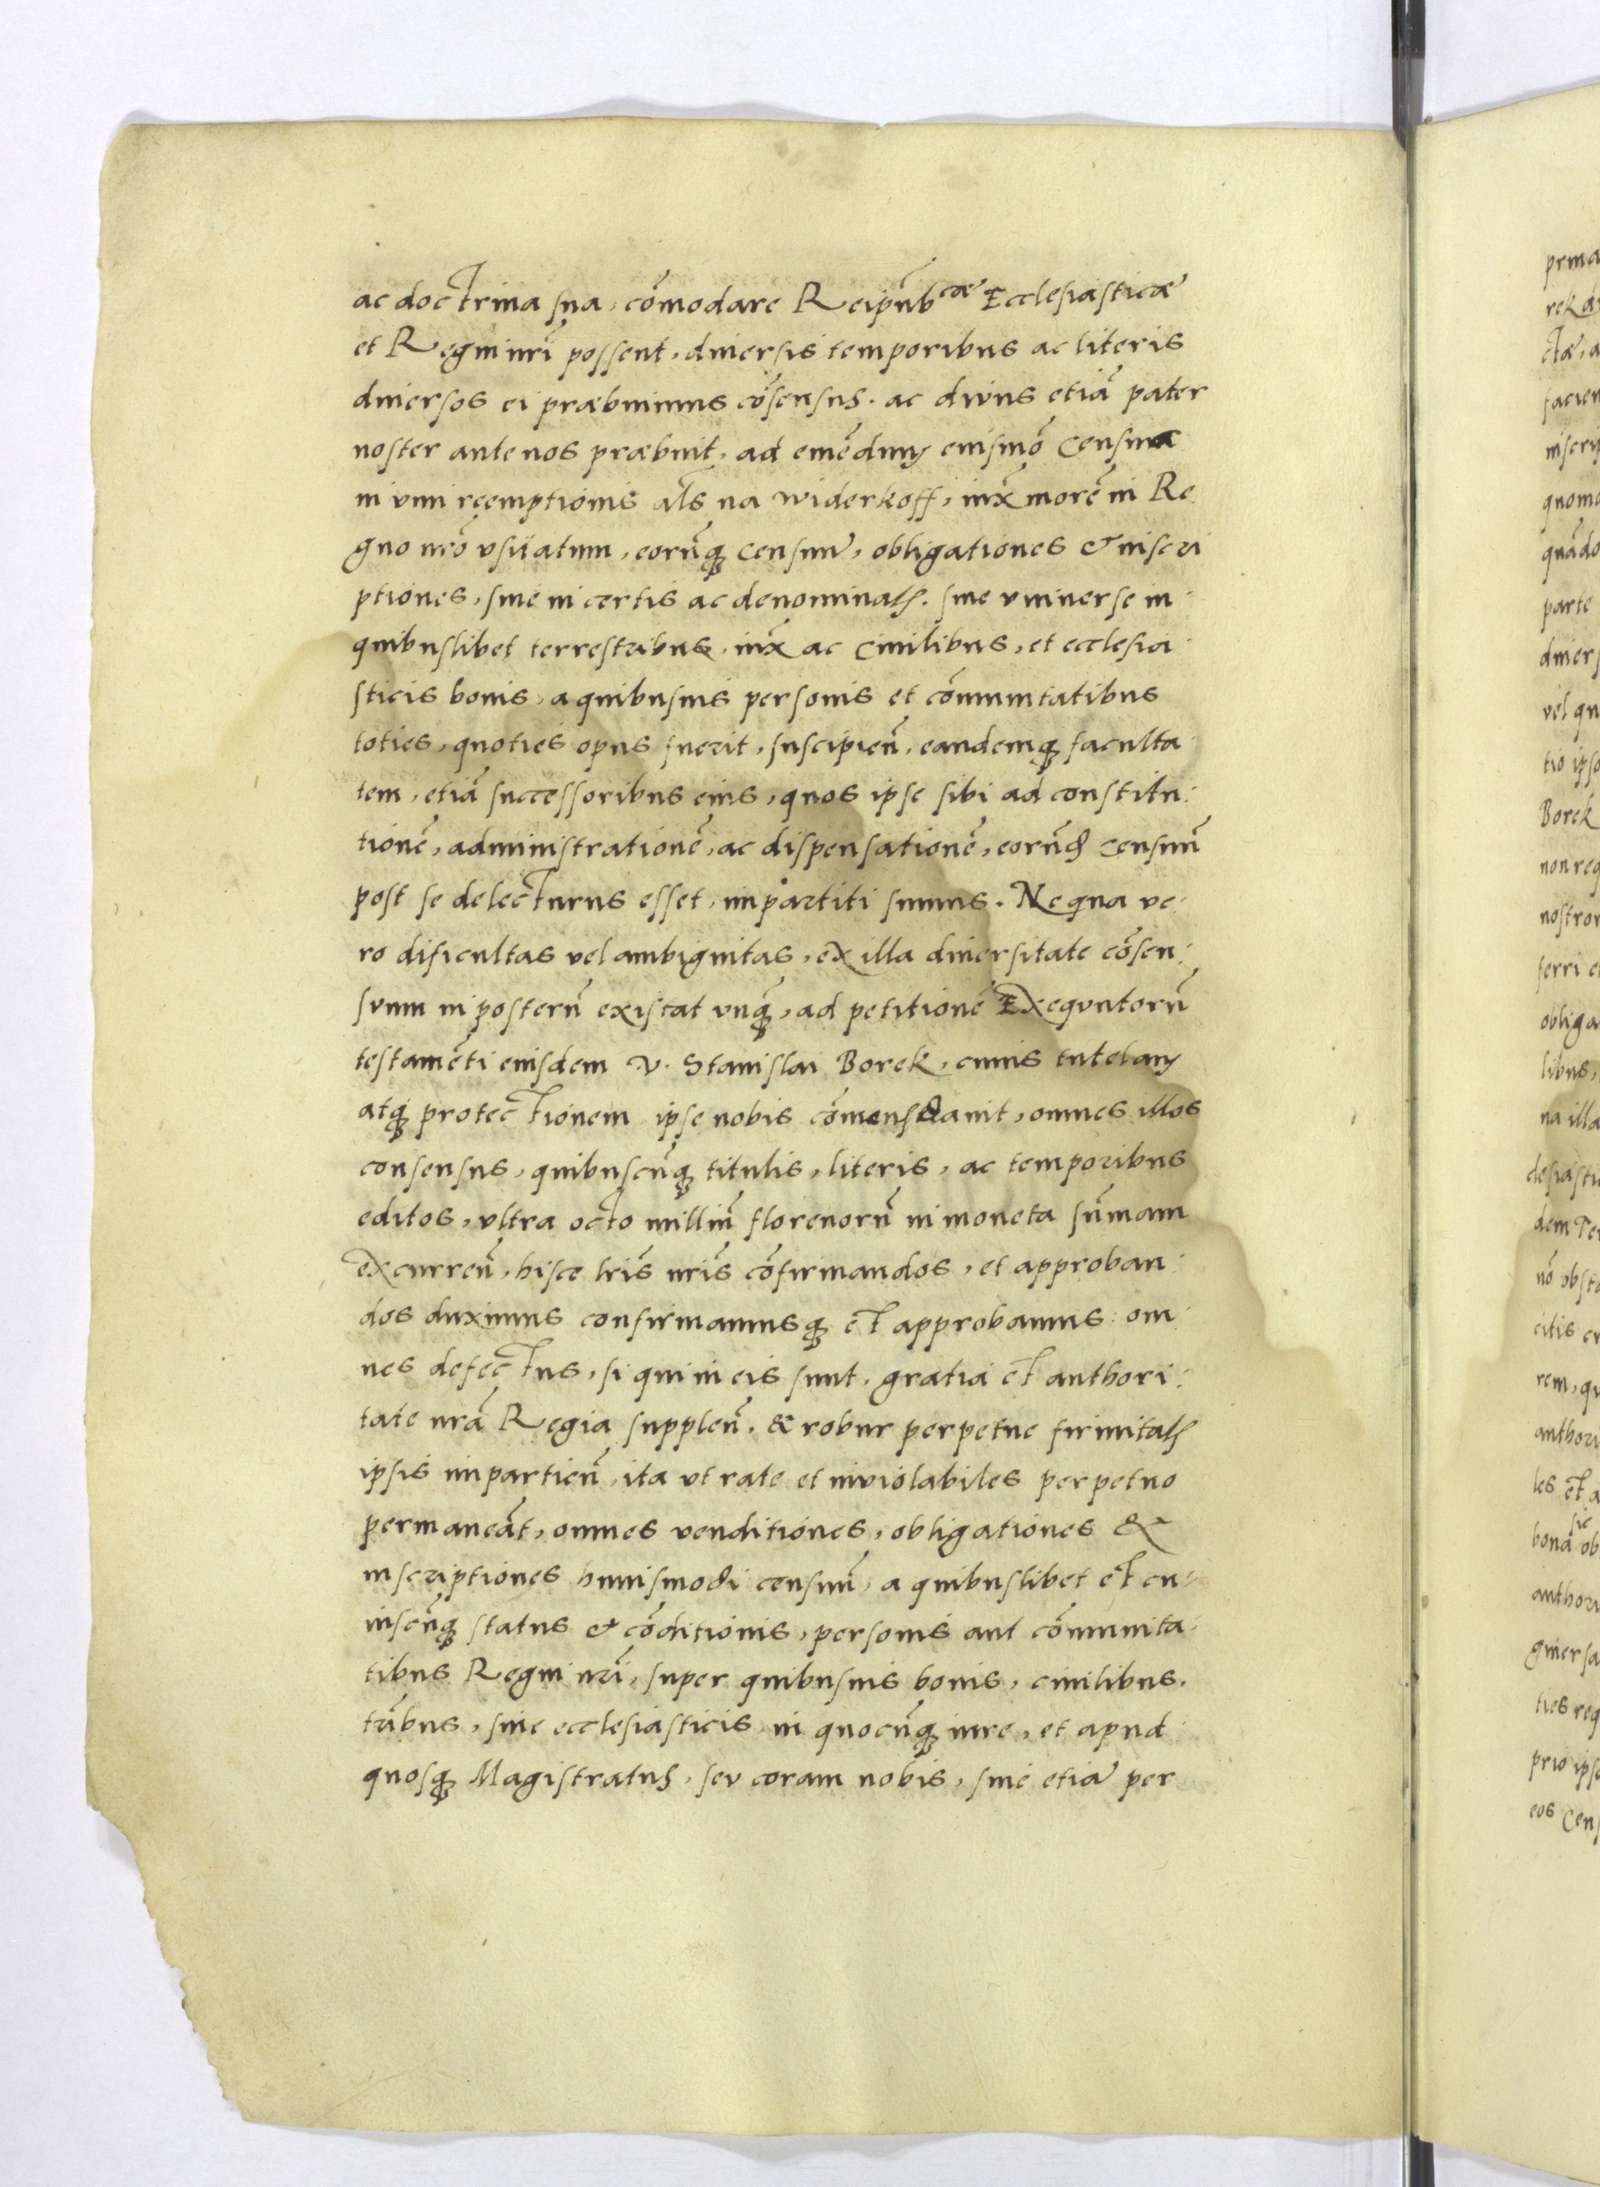 ac doctrina sua, cõmodare Reipub^cae Ecclesiasticæ
et Regni nrĩ possent, diuersis temporibus ac literis
diuersos ei præbuimus cõsensus. ac diuus etiã pater
noster ante nos præbuit, ad emẽdum eiusmõ Censum
in vim reemptionis als na widerkoff, iuxͣ morẽ in Re
gno nrõ vsitatum, eorũq; censuũ, obligationes & inscri
ptiones, siue in certis ac denominatis. siue vniuerse in
quibuslibet terrestribus, iuxͣ ac Ciuilibus, et ecclesia
sticis bonis, a quibusuis personis et cõmunitatibus
toties, quoties opus fuerit, suscipieñ, eandemq; faculta
tem, etiã successoribus eius, quos ipse sibi ad constitu:
tionẽ, administrationẽ, ac dispensationẽ, eorũd censuũ
post se delecturus esset, impartiti sumus. Ne qua ve
ro dificultas vel ambiguitas, ex illa diuersitate cõsen:
suum in posterũ existat vnq;, ad petitionẽ Exequutorũ
testamẽti eiusdem V. Stanislai Borek, cuius tutelam
atq; protectionem ipse nobis cõmendauit, omnes illos
consensus, quibuscũq; titulis, literis, ac temporibus
editos, vltra octo milliũ florenorũ in moneta sũmam
excurreñ, hisce lris nris cõfirmandos, et approban
dos duximus confirmamusq; et approbamus: om
nes defectus, si qui in eis sunt, gratia et authori:
tate nrã Regia suppleñ. & robur perpetue firmitatis
ipsis impartieñ, ita vt rate et inuiolabiles perpetuo
permaneãt, omnes venditiones, obligationes &
inscriptiones huiusmodi censuũ, a quibuslibet et cu
iuscũq; status & cõditionis, personis aut cõmunita
tibus Regni nrĩ, super quibusuis bonis, ciuilibus,
trĩbus, siue ecclesiasticis in quocũq; iure, et apud
quosq; Magistratus, seu coram nobis, siue etiã per
prma
rek
faciem
inscrip
quomo
quãdo
parte
diuers
vel qu
tio ipso
Borek
non req
nostror
ferri e
obliga
libus,
na illa
clesiasti
dem Te
nõ obsta
citis
rem, qu
authori
les et a
bona sie ob
authori
giuersa
ties req
prio ipse
eos Cens